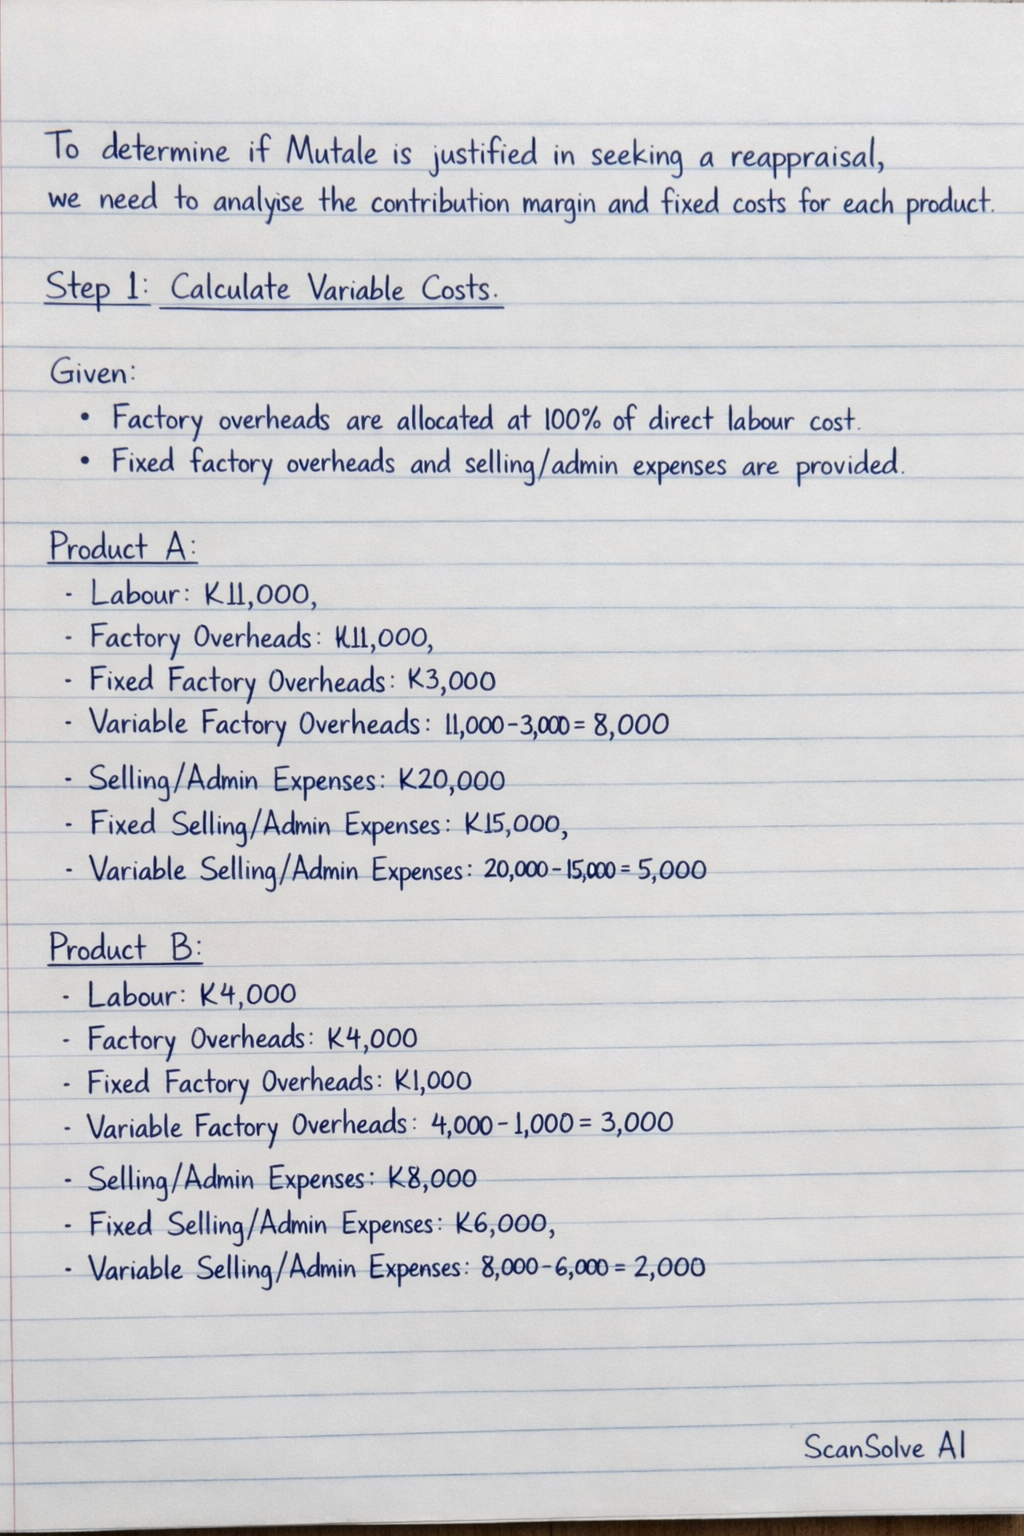 To determine if Mutale is justified in seeking a reappraisal,
we need to analyise the contribution margin and fixed costs for each product.
Step 1: Calculate Variable Costs.
Given:
• Factory overheads are allocated at 100% of direct labour cost.
• Fixed factory overheads and selling/admin expenses are provided.
Product A:
- Labour: K11,000,
- Factory Overheads: K11,000,
- Fixed Factory Overheads: K3,000
- Variable Factory Overheads: 11,000-3,000 = 8,000
- Selling/Admin Expenses: K20,000
- Fixed Selling/Admin Expenses: K15,000,
- Variable Selling/Admin Expenses: 20,000-15,000 = 5,000
Product B:
- Labour: K4,000
- Factory Overheads: K4,000
- Fixed Factory Overheads: K1,000
- Variable Factory Overheads: 4,000-1,000 = 3,000
- Selling/Admin Expenses: K8,000
- Fixed Selling/Admin Expenses: K6,000,
- Variable Selling/Admin Expenses: 8,000-6,000 = 2,000
ScanSolve AI